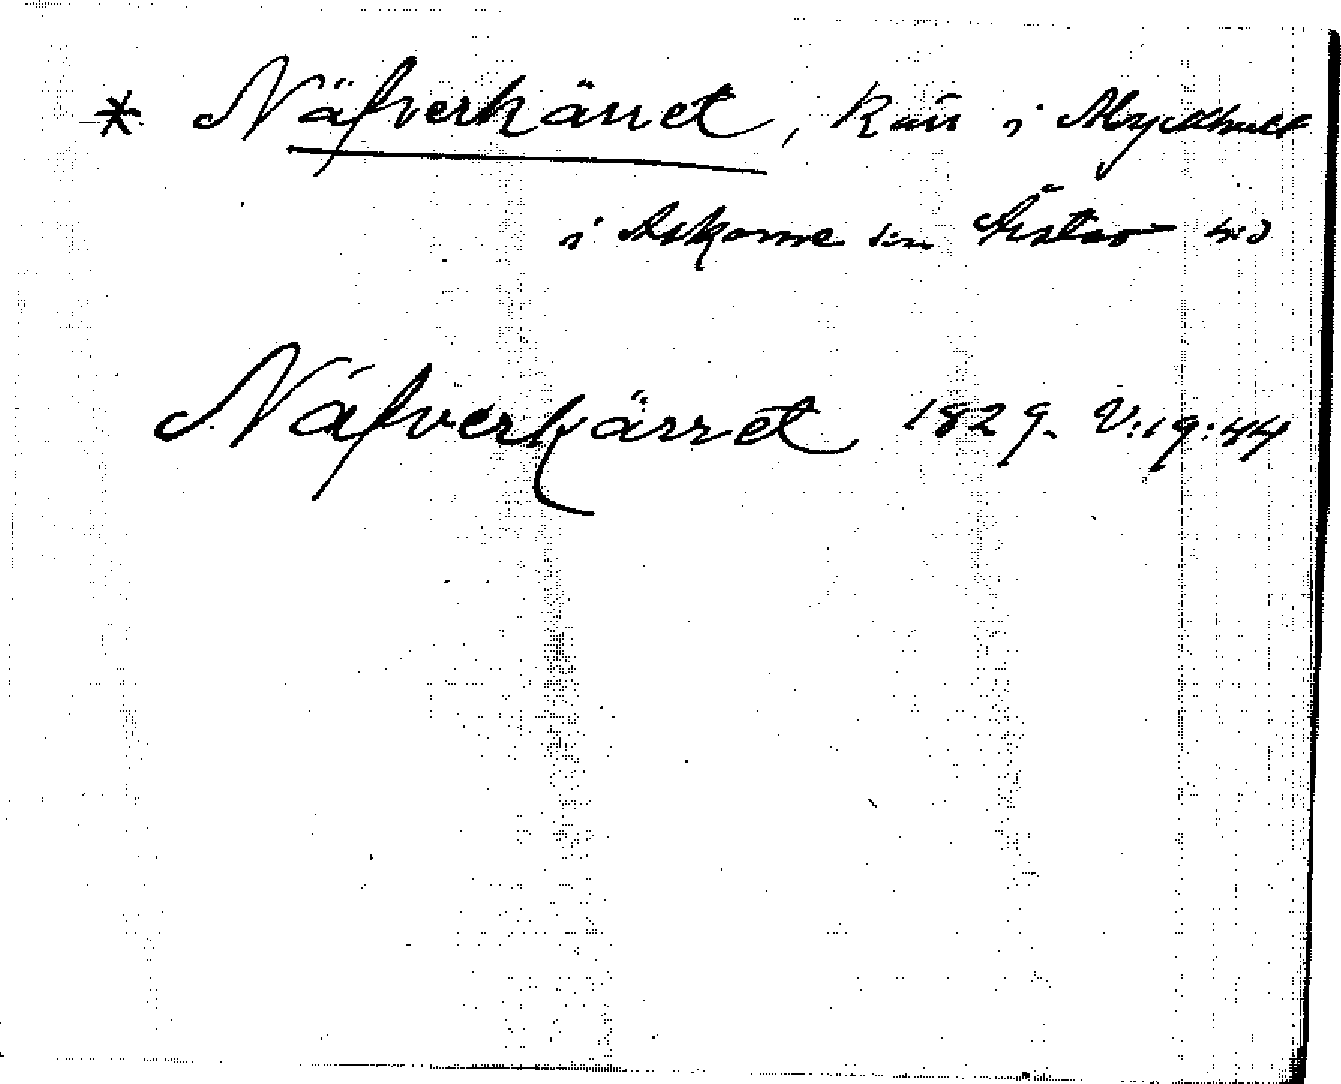 * Näfverkärret, kärr i Myckhult
i Askome sn Årstad hd
Näfverkärret 1829. V:19:44